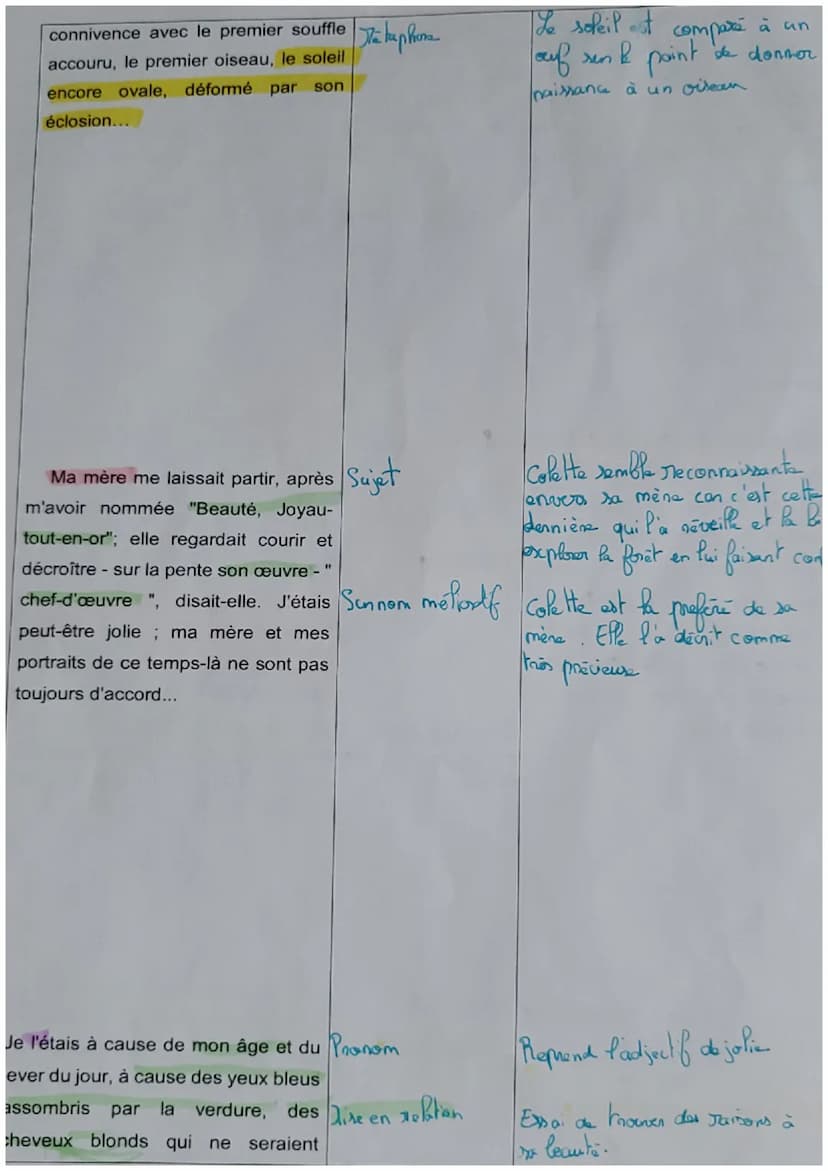 connivence avec le premier souffle
accouru, le premier oiseau, le soleil
encore ovale, déformé par son
éclosion...
Métaphore
Le soleil est comparé à un
œuf sur le point de donner
naissance à un oiseau
Ma mère me laissait partir, après
m'avoir nommée "Beauté, Joyau-
tout-en-or"; elle regardait courir et
décroître - sur la pente son œuvre - "
chef-d'œuvre ", disait-elle. J'étais
peut-être jolie ; ma mère et mes
portraits de ce temps-là ne sont pas
toujours d'accord...
Sujet
Surnom mélioratif
Colette semble reconnaissante
envers sa mère car c'est cette
dernière qui l'a réveillé et la
explorer la forêt en lui faisant
Colette est la preferé de sa
mère. Elle l'a décrit comme
très précieuse
Je l'étais à cause de mon âge et du
ever du jour, à cause des yeux bleus
assombris par la verdure, des
cheveux blonds qui ne seraient
Pronom
Mise en relation
Reprend l'adjectif de jolie
Essai de trouver des raisons à
sa beauté.